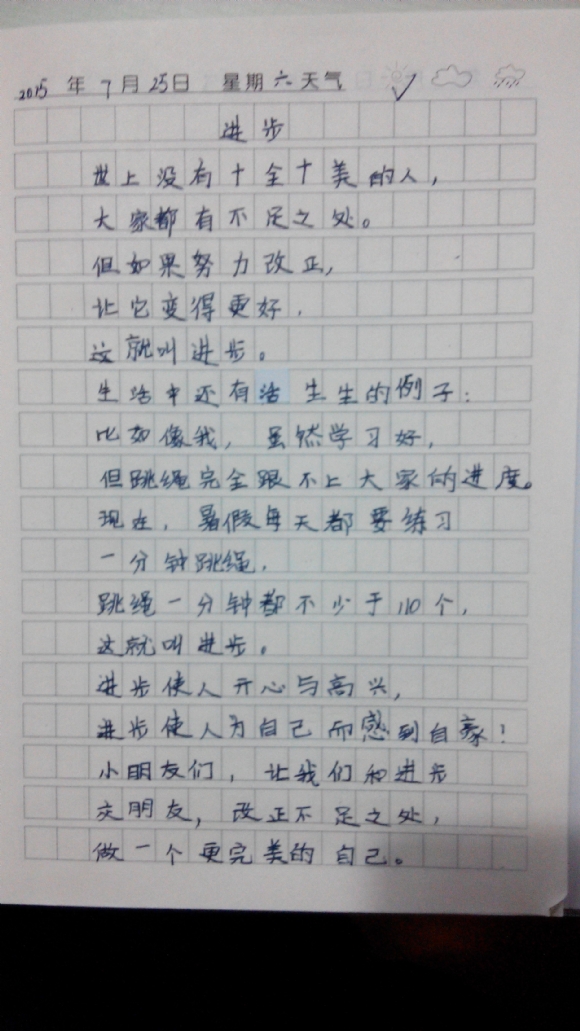 2015 年 7 月 25 日 星期六 天气
进步
世上没有十全十美的人，
大家都有不足之处。
但如果努力改正，
让它变得更好，
这就叫进步。
生活中还有活生生的例子：
比如像我，虽然学习好，
但跳绳完全跟不上大家的进度。
现在，暑假每天都要练习
一分钟跳绳，
跳绳一分钟都不少于110个，
这就叫进步。
进步使人开心与高兴，
进步使人为自己而感到自豪！
小朋友们，让我们和进步
交朋友，改正不足之处，
做一个更完美的自己。